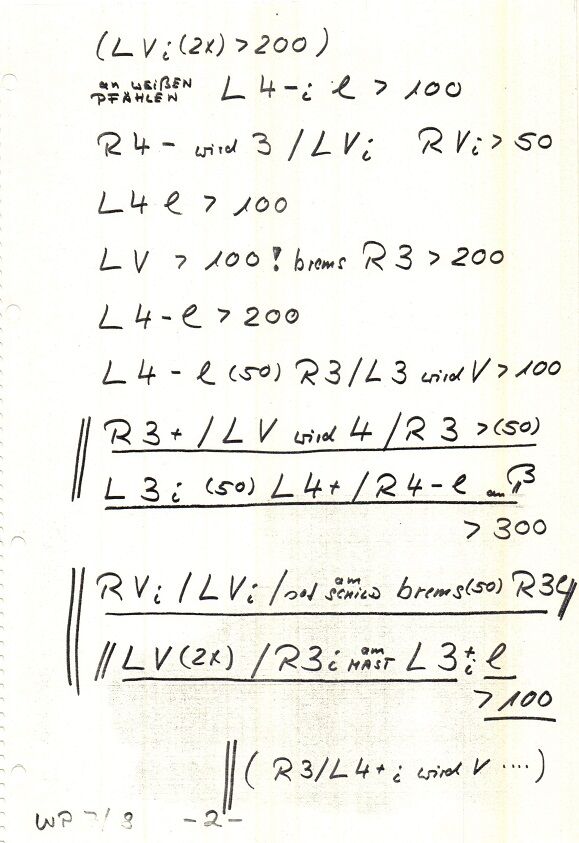 (LVi(2x)>200)
an WEIßEN PFÄHLEN L4-i l > 100
R4- wird 3 /LVi RVi>50
L4 l > 100
LV > 100! brems R3>200
L4-l>200
L4-l(50) R3/L3 wird V>100
R3+/LV wird 4/R3>(50)
L3i (50) L4+/R4-l am
>300
RVi/LVi/ am SCHILD brems(50) R3l
//LV(2x)/R3i am MAST L3+i l
>100
(R3/L4+i wird V ....)
WP 7/8 -2-